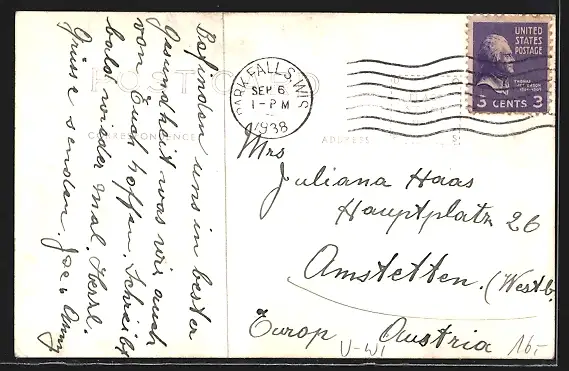 Befinden uns in bester
Gesundheit was wir auch
von Euch hoffen. Schreibt
bald wieder mal. Herzl.
Grüsse senden Joe u Anny
POST CARD
CORRESPONDENCE
ADDRESS
PARK FALLS, WIS.
SEP 6
1-PM
1938
UNITED
STATES
POSTAGE
THOMAS
JEFFERSON
3 CENTS 3
Mrs
Juliana Haas
Hauptplatz 26
Amstetten. (Westb.
Europ Austria
U-WI
16.-